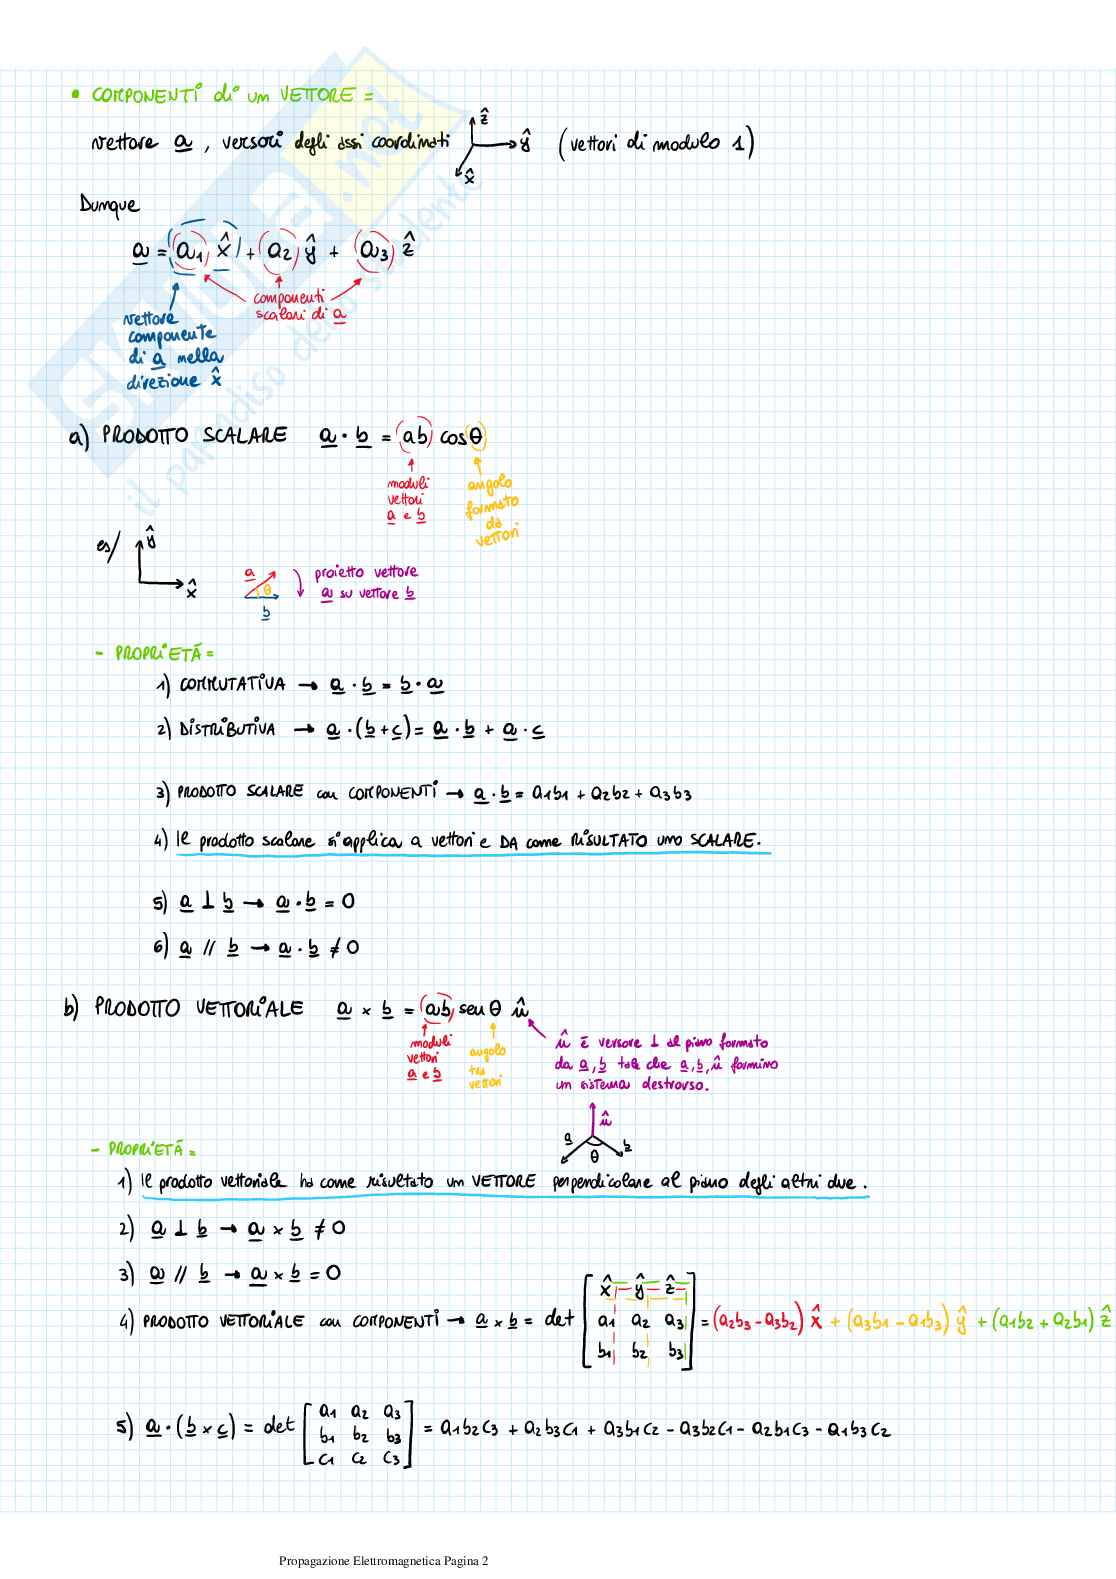 • COMPONENTI di un VETTORE =
vettore a, versori degli assi coordinati ẑ ŷ x̂ (vettori di modulo 1)
Dunque
a = a1 x̂ + a2 ŷ + a3 ẑ
componenti
scalari di a
vettore
componente
di a nella
direzione x̂
a) PRODOTTO SCALARE a · b = ab cosθ
moduli
vettori
a e b
angolo
formato
da
vettori
es/ ŷ x̂
a θ b
proietto vettore
a su vettore b
- PROPRIETÁ =
1) COMMUTATIVA → a · b = b · a
2) DISTRIBUTIVA → a · (b + c) = a · b + a · c
3) PRODOTTO SCALARE con COMPONENTI → a · b = a1b1 + a2b2 + a3b3
4) Il prodotto scalare si applica a vettori e DA come RISULTATO uno SCALARE.
5) a ⊥ b → a · b = 0
6) a // b → a · b ≠ 0
b) PRODOTTO VETTORIALE a × b = ab sen θ û
moduli
vettori
a e b
angolo
tra
vettori
û é versore ⊥ al piano formato
da a, b tale che a, b, û formino
un sistema destrorso.
û a b θ
- PROPRIETÁ =
1) Il prodotto vettoriale ha come risultato un VETTORE perpendicolare al piano degli altri due.
2) a ⊥ b → a × b ≠ 0
3) a // b → a × b = 0
4) PRODOTTO VETTORIALE con COMPONENTI → a × b = det [x̂ ŷ ẑ a1 a2 a3 b1 b2 b3] = (a2b3 - a3b2) x̂ + (a3b1 - a1b3) ŷ + (a1b2 + a2b1) ẑ
5) a · (b × c) = det [a1 a2 a3 b1 b2 b3 c1 c2 c3] = a1b2c3 + a2b3c1 + a3b1c2 - a3b2c1 - a2b1c3 - a1b3c2
Propagazione Elettromagnetica Pagina 2